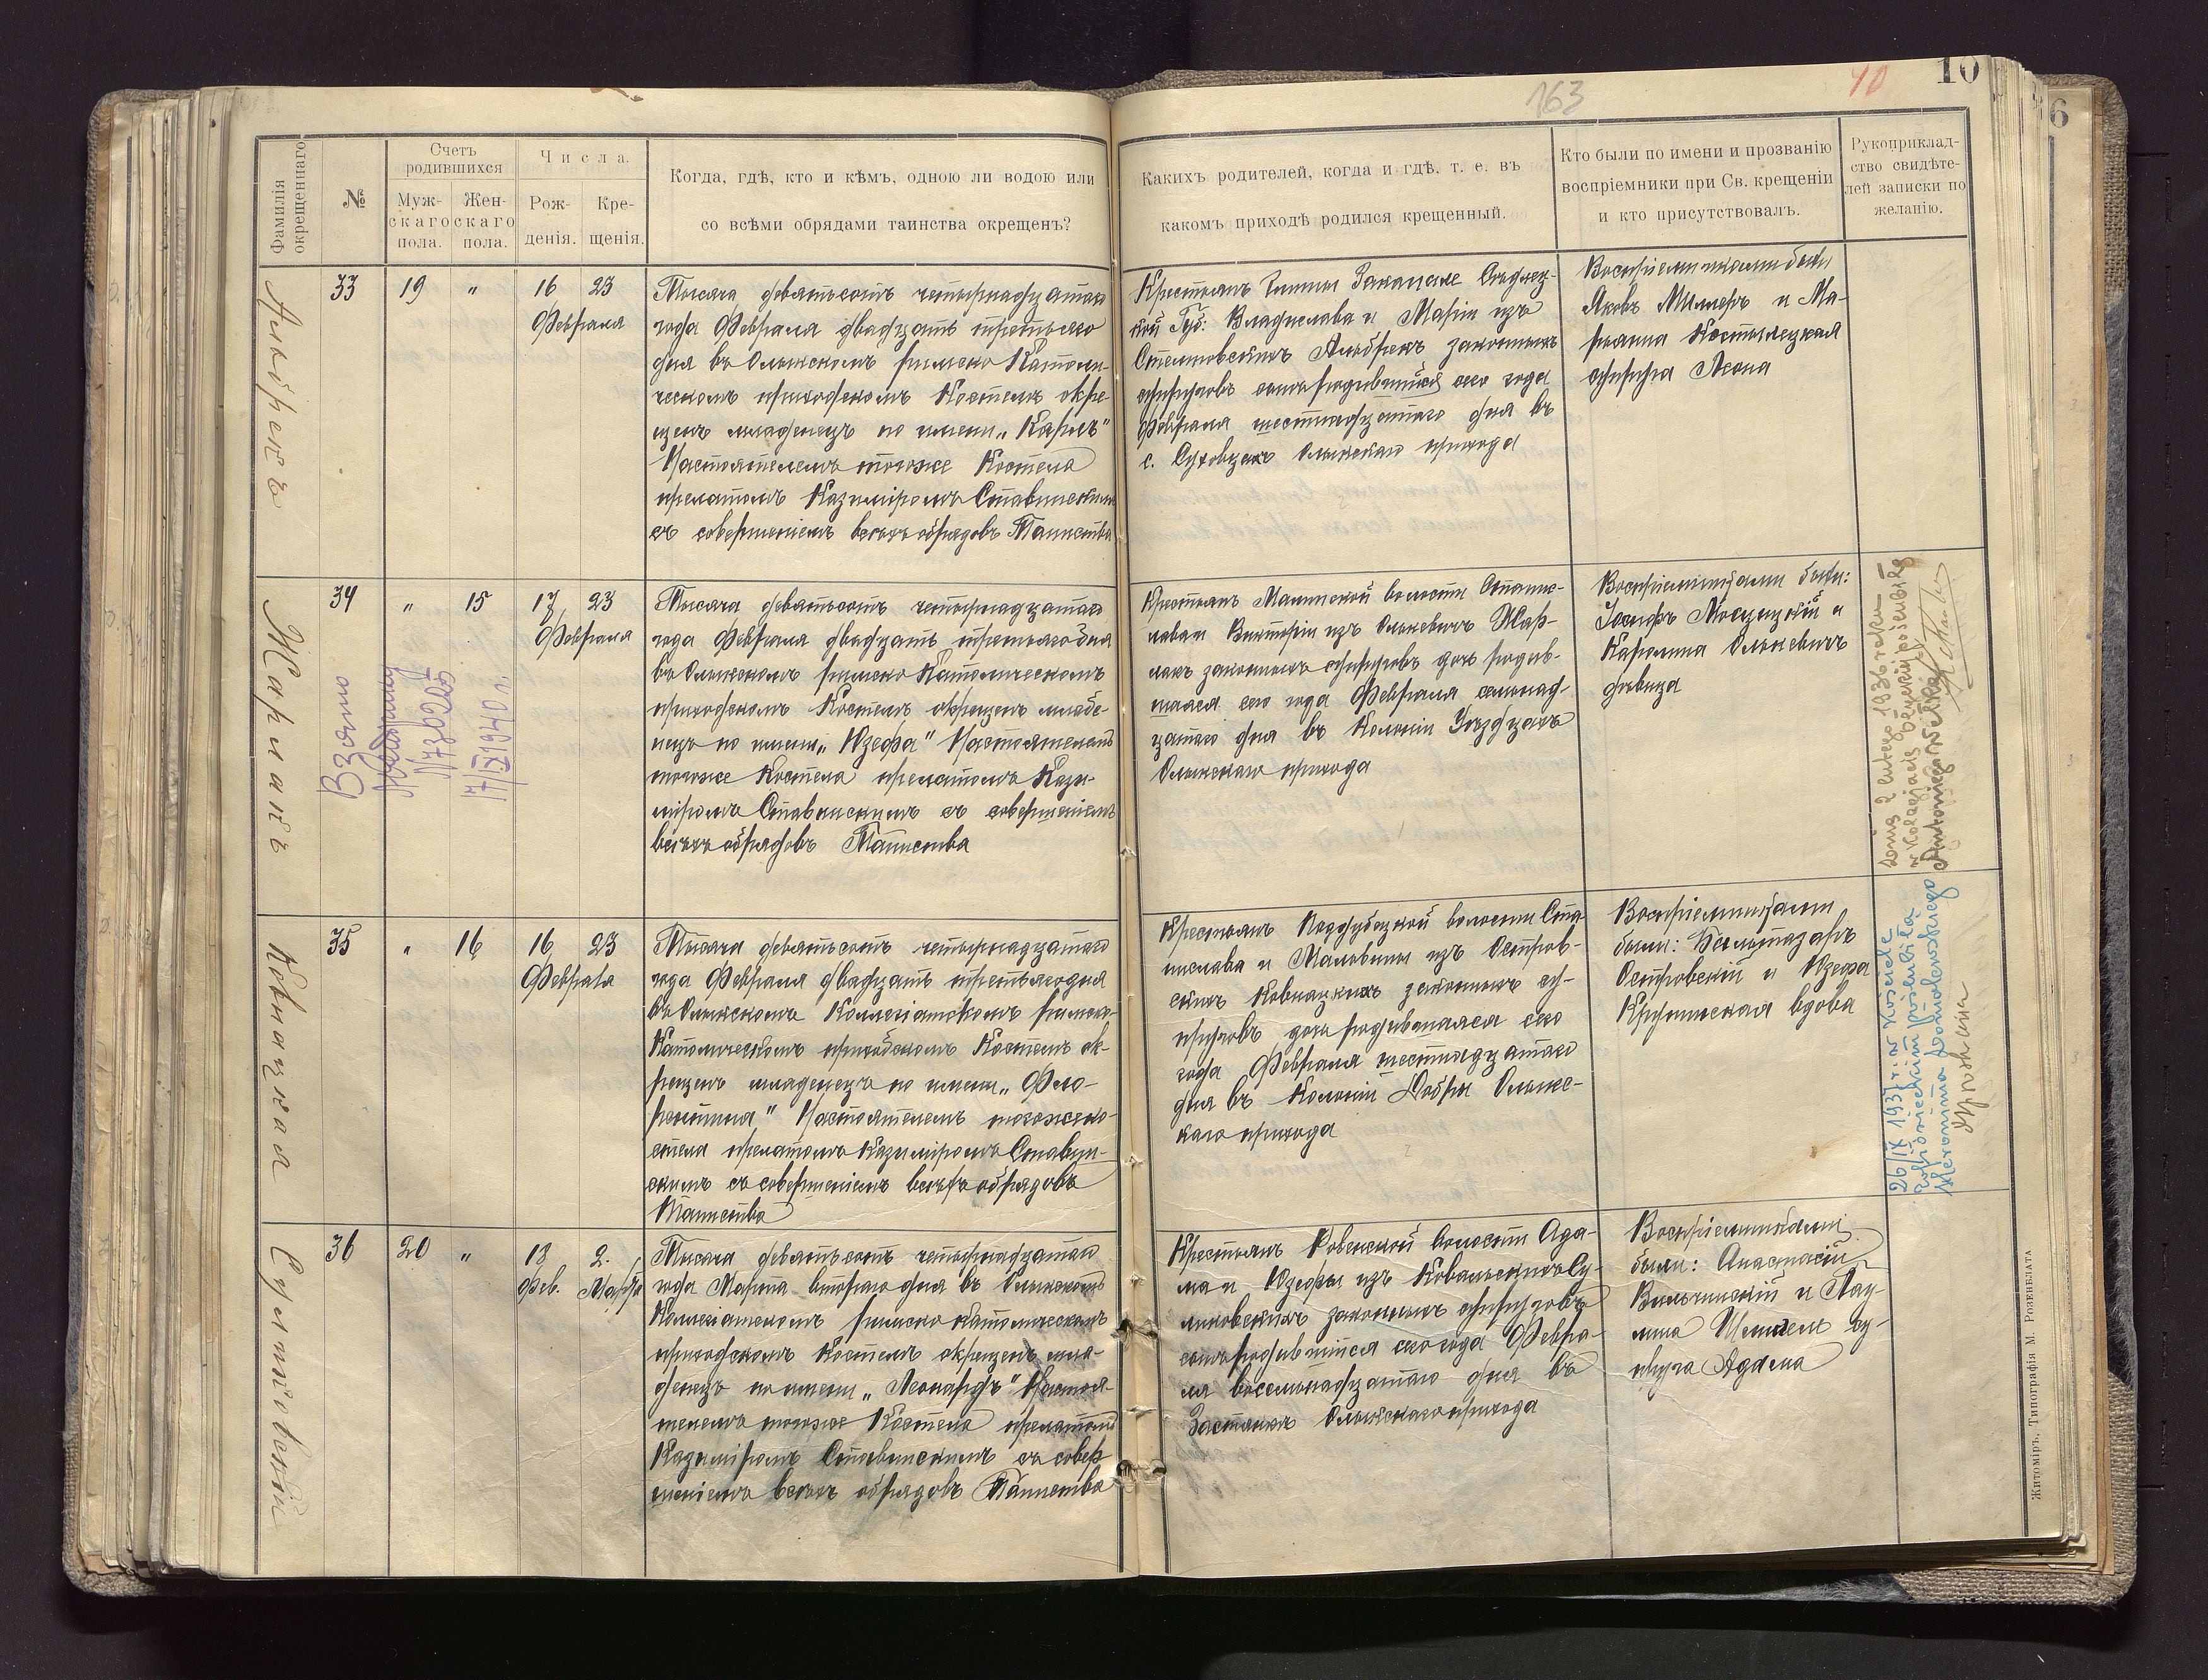 163
10
10
6
Фамилія окрещеннаго
№
Счетъ родившихся
Муж-скаго пола.
Жен-скаго пола.
Числа.
Рож-денія.
Кре-щенія.
Когда, гдѣ, кто и кѣмъ, одною ли водою или
со всѣми обрядами таинства окрещенъ?
Какихъ родителей, когда и гдѣ, т. е. въ
какомъ приходѣ родился крещенный.
Кто были по имени и прозванію
воспріемники при Св. крещеніи
и кто присутствовалъ.
Рукоприклад-
ство свидѣте-
лей записки по
желанію.
Альбрехъ
33
19
"
16
23
Февраля
Тысяча девятьсотъ четырнадцатаго
года Февраля двадцать третьяго
дня въ Олыкскомъ римско Католи-
ческомъ приходскомъ Костелѣ окре-
щенъ младенецъ по имени „Карлъ"
Настоятелемъ тогоже Костела
прелатомъ Казиміромъ Ставинскимъ
съ совершеніемъ всѣхъ обрядовъ Таинства
Крестьянъ Гмины Заканале Сѣдлец-
кой Губ: Владислава и Маріи изъ
Стемповскихъ Альбрехъ законныхъ
супруговъ сынъ родившійся сего года
Февраля шестнадцатаго дня въ
с. Суховцахъ Олыкскаго прихода
Воспріемниками были
Яковъ Миллеръ и Ма-
ріанна Костылецкая
супруга Леона
Жарнакъ
34
"
15
17
23
Февраля
Взято
N 730225
17/IX 1940 г.
Тысяча девятьсотъ четырнадцатаго
года Февраля двадцать третьяго дня
въ Олыкскомъ римско Католическомъ
приходскомъ Костелѣ окрещенъ младе-
нецъ по имени „Юзефа" Настоятелемъ
тогоже Костела прелатомъ Кази-
міромъ Ставинскимъ съ совершеніемъ
всѣхъ обрядовъ Таинства
Крестьянъ Малинской волости Станис-
лава и Викторіи изъ Олькевичъ Жар-
накъ законныхъ супруговъ дочь родив-
шаяся сего года Февраля семнад-
цатаго дня въ Колоніи Уѣздцахъ
Олыкскаго прихода
Воспріемниками были:
Іосифъ Мосцицкій и
Каролина Олькевичъ
дѣвица
dnia 2 lutego 1936 roku
Ковнацкая
35
"
16
16
23
Февраля
Тысяча девятьсотъ четырнадцатаго
года Февраля двадцать третьяго дня
въ Олыкскомъ Коллегіатскомъ римско-
Католическомъ приходскомъ Костелѣ ок-
рещенъ младенецъ по имени „Фло-
рентина" Настоятелемъ тогоже Ко-
стела прелатомъ Казиміромъ Ставин-
скимъ съ совершеніемъ всѣхъ обрядовъ
Таинства
Крестьянъ Поддубецкой волости Ста-
нислава и Мальвины изъ Остров-
скихъ Ковнацкихъ законныхъ су-
пруговъ дочь родившаяся сего
года Февраля шестнадцатаго
дня въ Колоніи Добры Олыкс-
каго прихода
Воспріемниками
были: Бальтазаръ
Островскій и Юзефа
Кршинская вдова
26/IX 1937 r. w Kościele
Сулиховскій
36
20
"
18
Фев.
2.
Марта
Тысяча девятьсотъ четырнадцатаго
года Марта второго дня въ Олыкскомъ
Коллегіатскомъ римско католическомъ
приходскомъ Костелѣ окрещенъ мла-
денецъ по имени „Леонардъ" Настоя-
телемъ тогоже Костела прелатомъ
Казиміромъ Ставинскимъ съ совер-
шеніемъ всѣхъ обрядовъ Таинства
Крестьянъ Ровенской волости Ада-
ма и Юзефы изъ Ковальскихъ Су-
лиховскихъ законныхъ супруговъ
сынъ родившійся сего года Февра-
ля восемнадцатаго дня въ
Застакахъ Олыкскаго прихода
Воспріемниками
были: Анастасій
Вильчинскій и Пау-
лина Шмигель су-
пруга Адама
Житоміръ, Типографія М. Розенблата